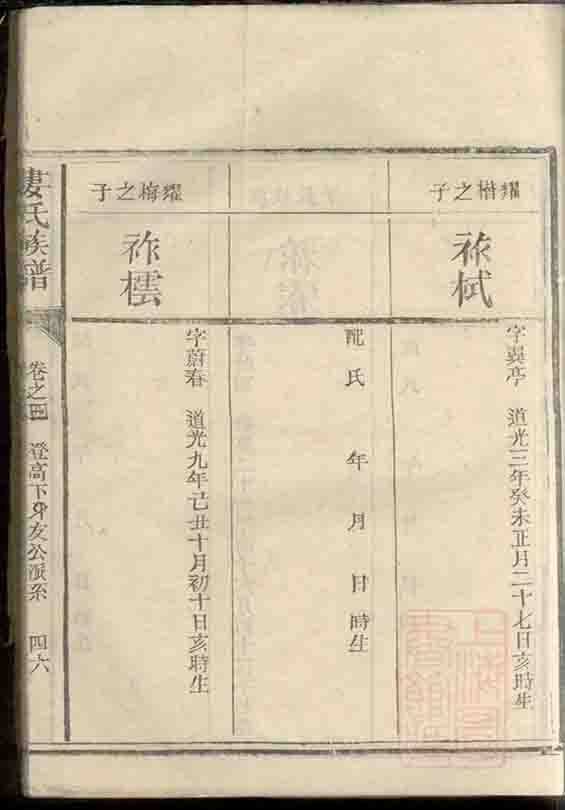 耀楷之子
祚栻
字巽亭 道光三年癸未正月二十七日亥時生
配氏 年 月 日 時生
耀梅之子
祚橒
字蔚春 道光九年己丑十月初十日亥時生
婁氏族譜 卷之四 登高下身友公派系 四六
上海圖書館藏